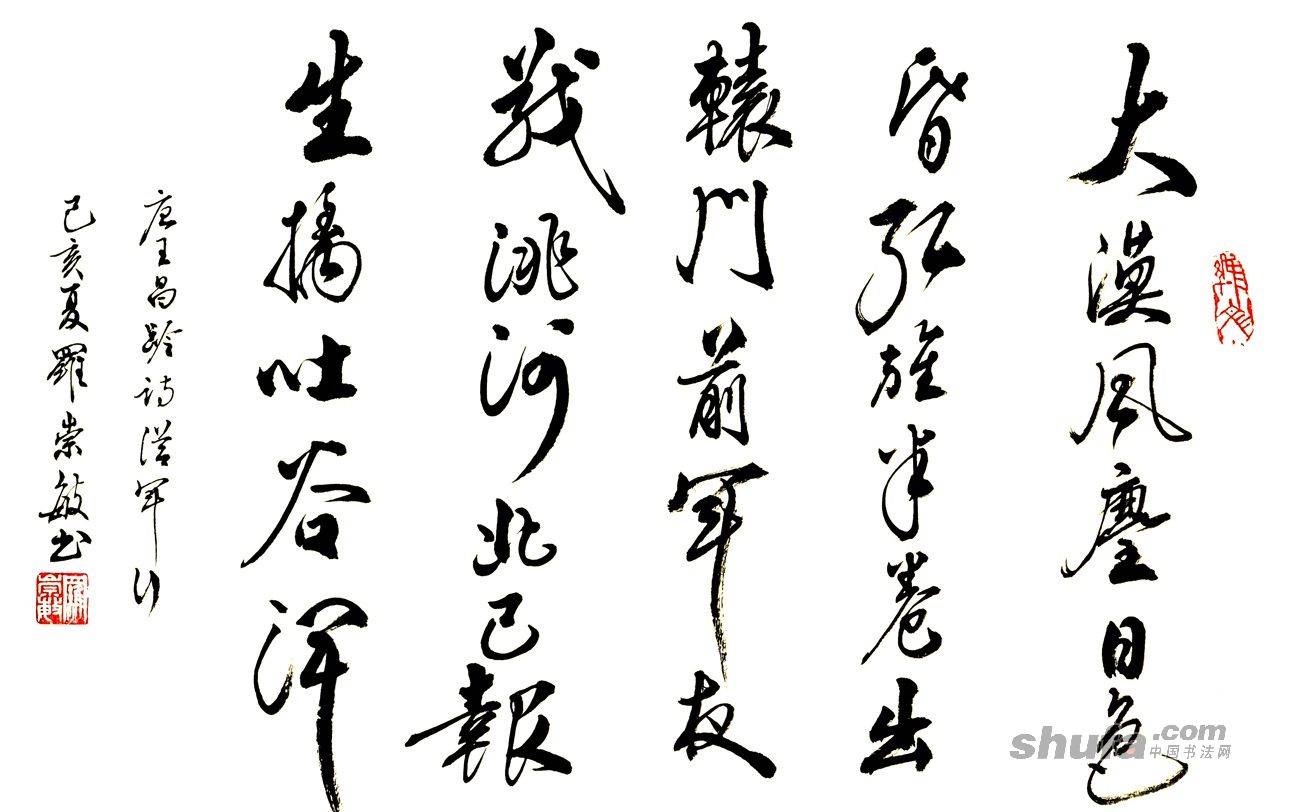 大漠風塵日色
昏紅旗半卷出
轅門前軍夜
戰洮河北已報
生擒吐谷渾
唐王昌齡詩從軍行
己亥夏羅崇敏书
shufa.com
中国书法网